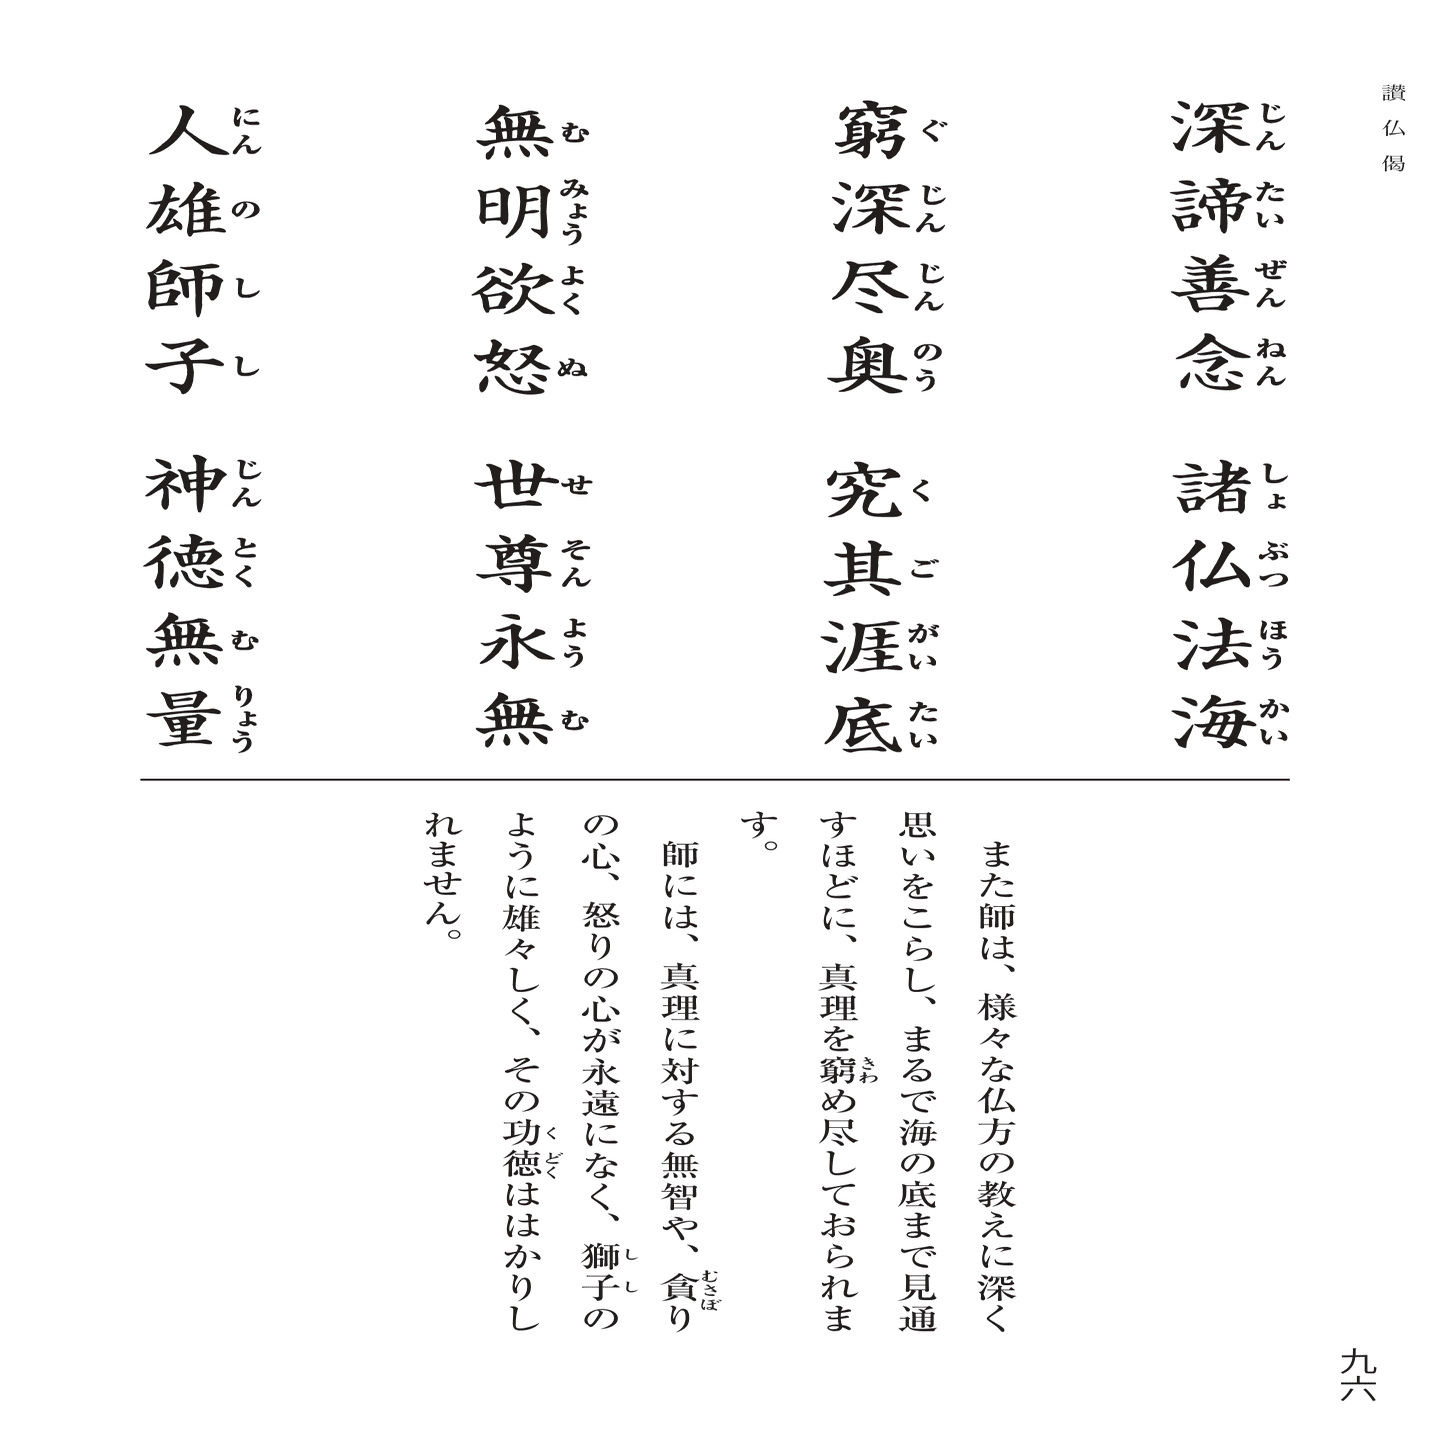 讃仏偈
深諦善念 諸仏法海
じんたいぜんねん しょぶつほうかい
窮深尽奥 究其涯底
ぐじんじんのう くごがいたい
無明欲怒 世尊永無
むみょうよくぬ せそんようむ
人雄師子 神徳無量
にんのしし じんとくむりょう
また師は、様々な仏方の教えに深く
思いをこらし、まるで海の底まで見通
すほどに、真理を窮め尽しておられま
きわ
す。
師には、真理に対する無智や、貪り
むさぼ
の心、怒りの心が永遠になく、獅子の
しし
ように雄々しく、その功徳ははかりし
くどく
れません。
九六